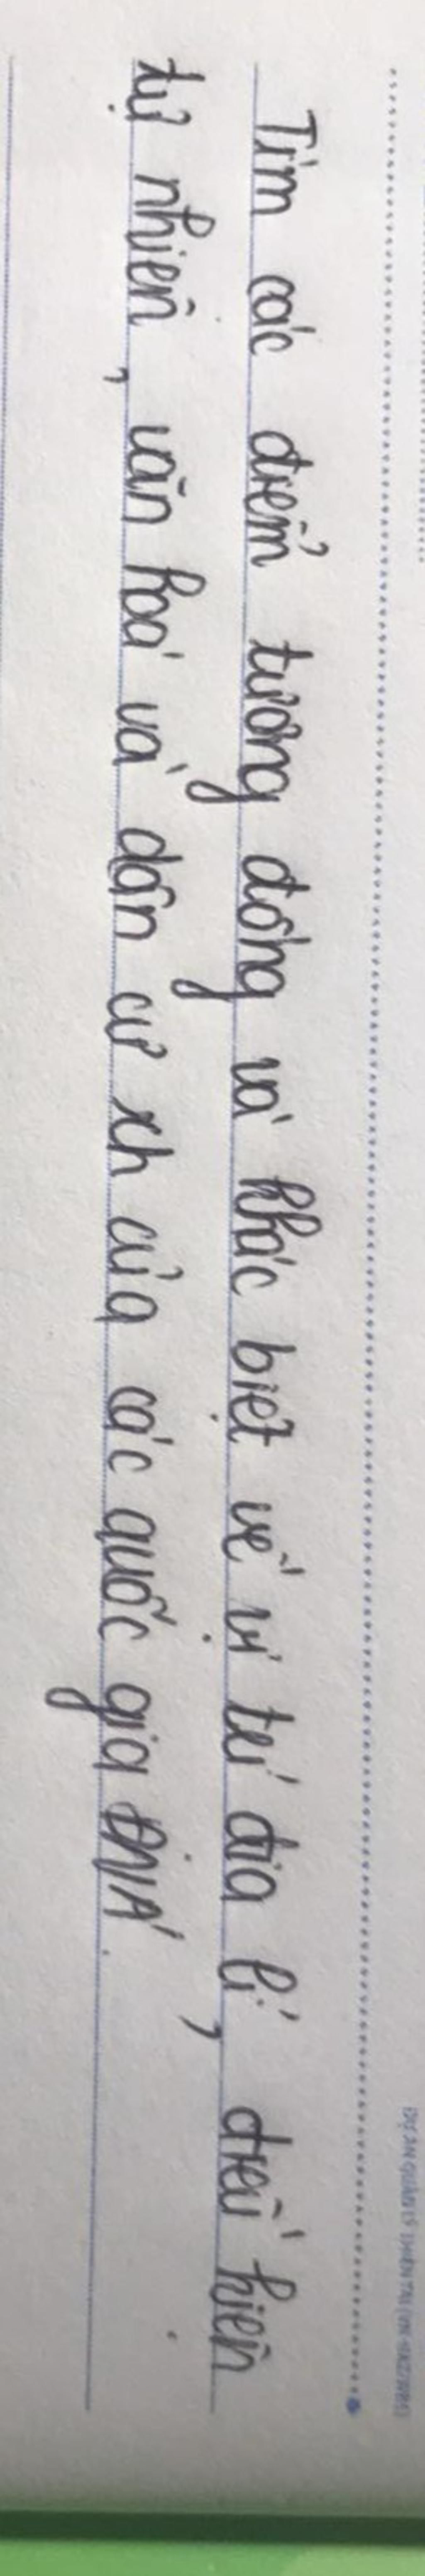 Tìm các điểm tương đồng và khác biệt về vị trí địa lí, điều kiện
tự nhiên, văn hoá và dân cư xh của các quốc gia ĐNÁ.